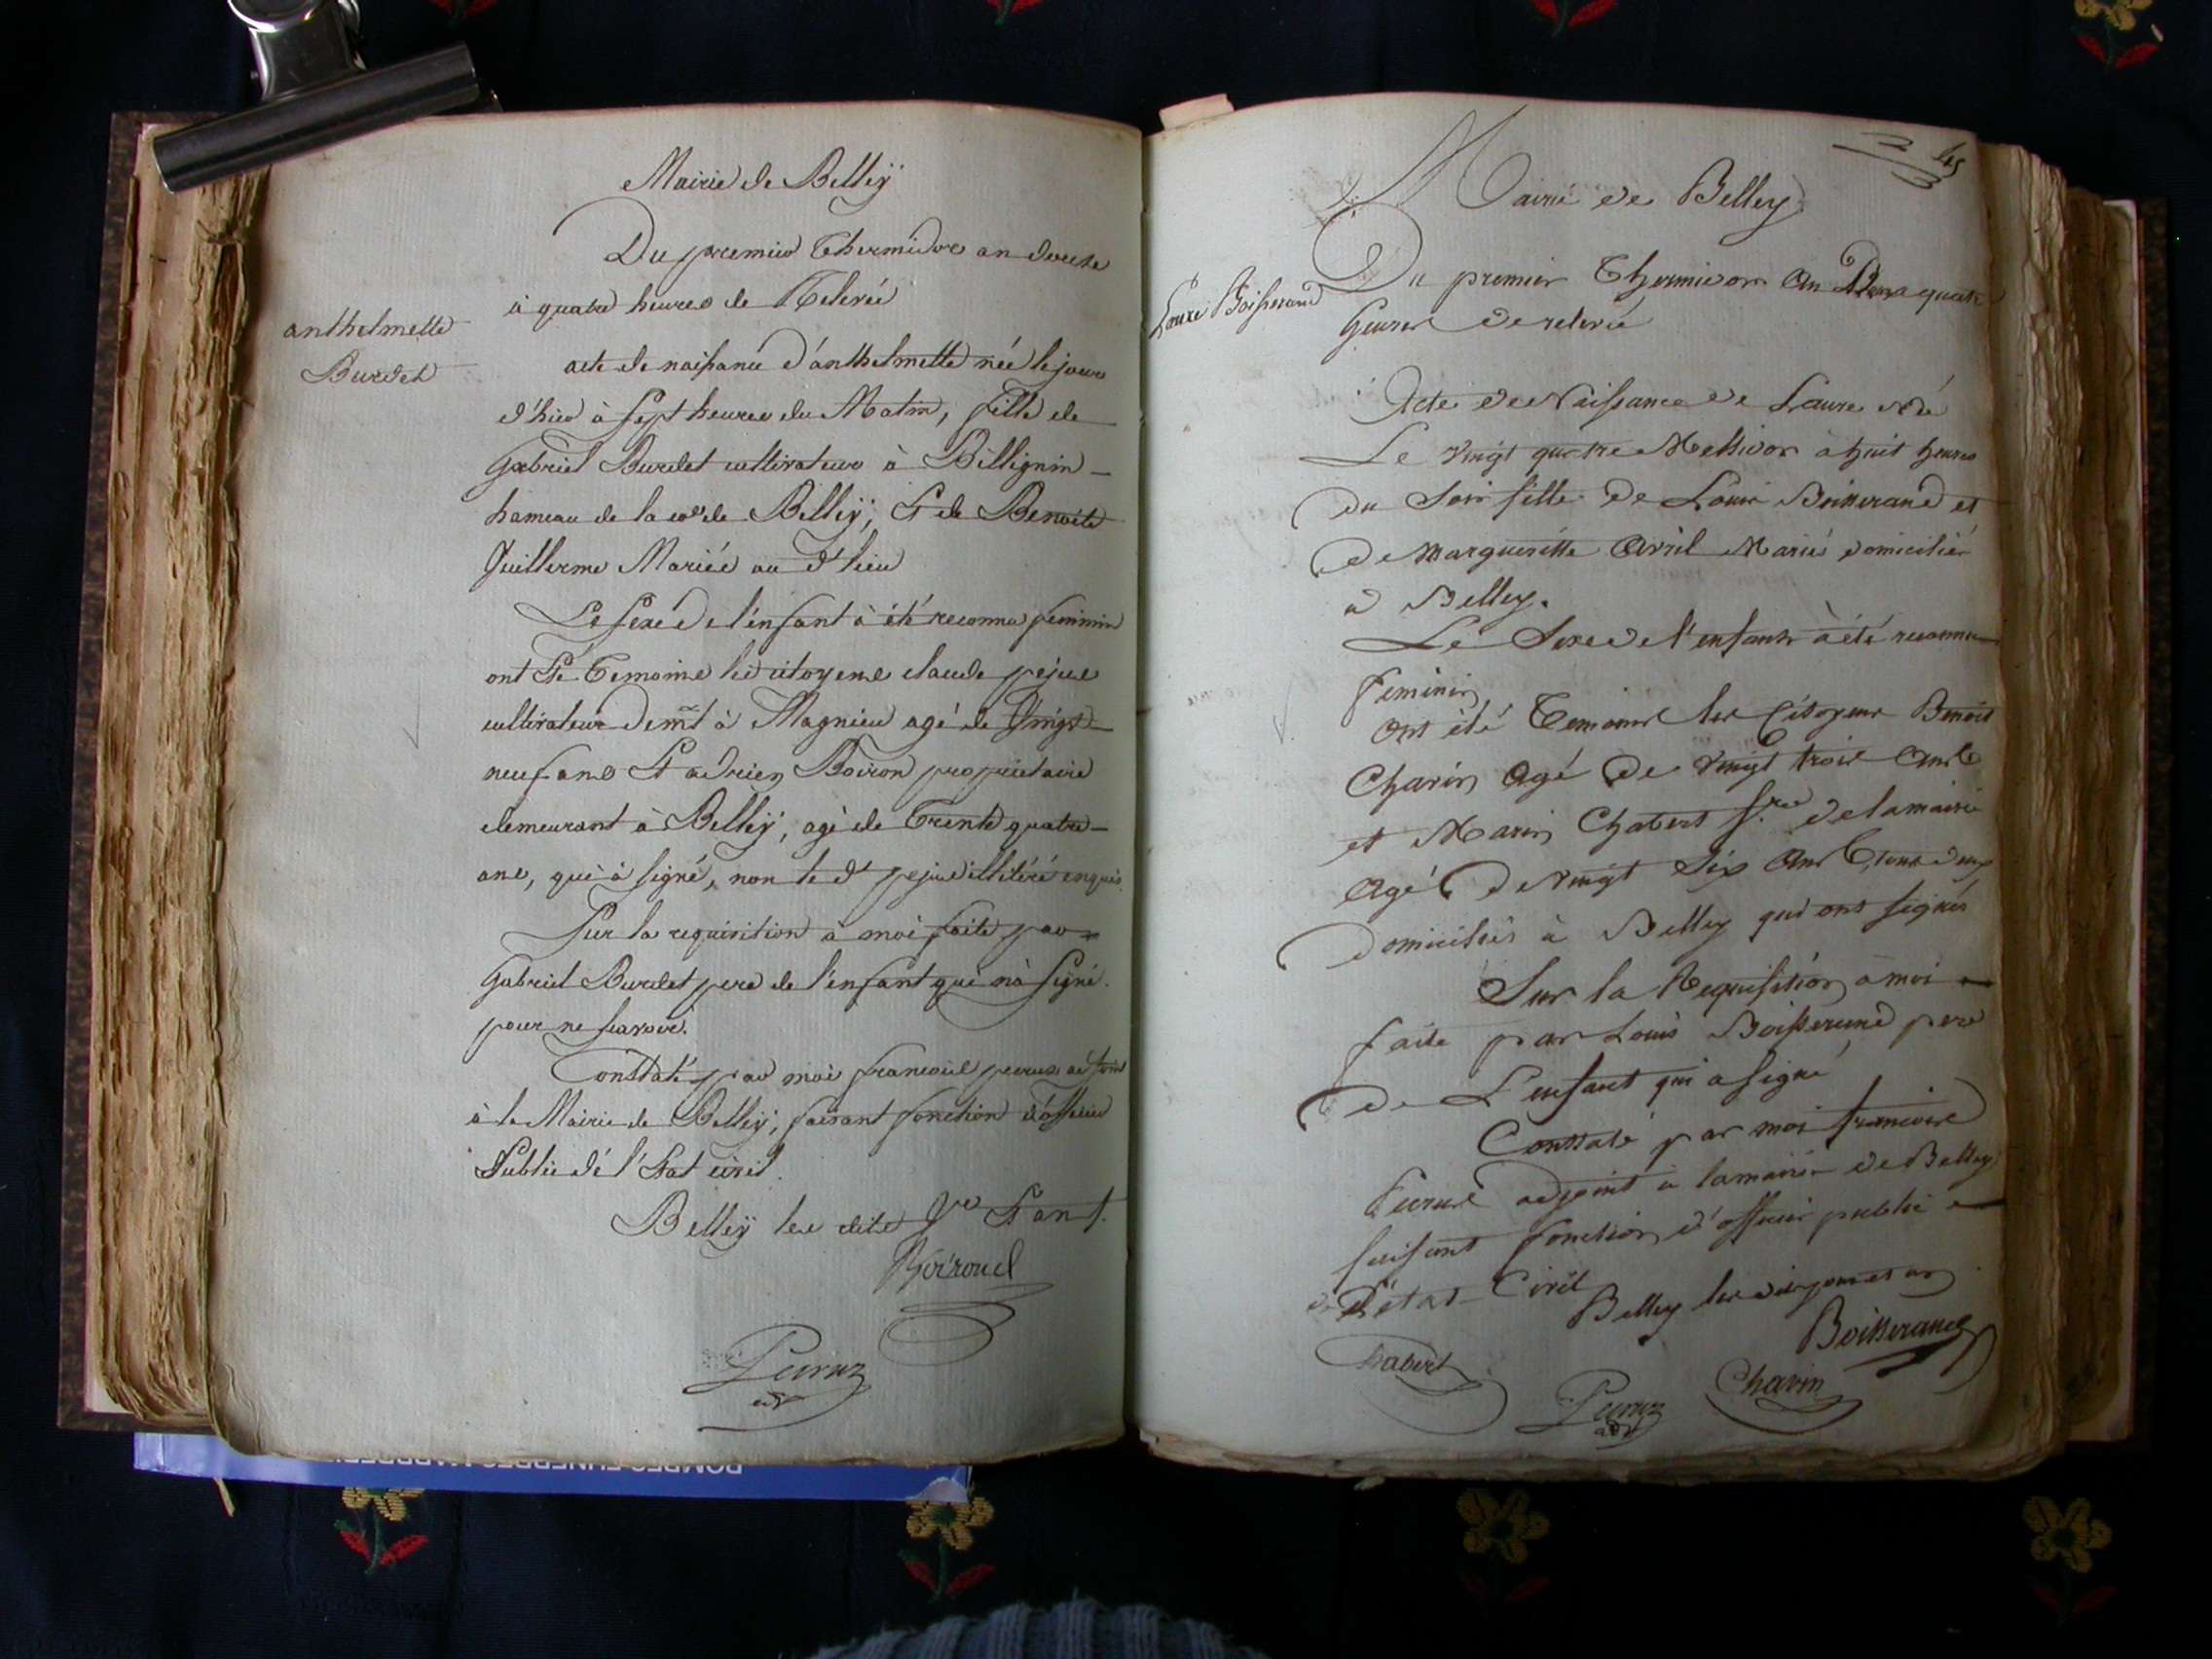 Mairie de Belleÿ
Du premier Thermidor an douze
à quatre heures de Relevée
anthelmette
Burdet
acte de naissance d'anthelmette née le jour
d'hier à sept heures du Matin, fille de
Gabriel Burdet cultivateur à Billignin
hameau de la de Belleÿ, Et de Benoite
Guillerme Mariée au dt lieu
Le sexe de l'enfant à été reconnu feminin
ont Eté Temoins les citoyens claude pejus
cultivateur demt à Magnieu agé de Vingt
neuf ans Et adrien Boiron proprietaire
demeurant à Belleÿ, agé de Trente quatre
ans, qui à signé, non le dt pejus illiteré enquis.
Sur la requisition à moi faite par
Gabriel Burdet pere de l'enfant qui n'à signé
pour ne scavoir.
Constaté par moi francois peruz adjoint
à la Mairie de Belleÿ, faisant fonction d'officier
Public dé l'Etat civil.
Belleÿ les dits Jr Et an.
Boiroud
Peruz
adt
45
Mairie de Belley
Laure Boisserand
Du premier Thermidor an Douze a quatre
heures de relevée
Acte de Naissance de Laure Née
Le vingt quatre Messidor à huit heures
du soir fille de Louis Boisserand et
de Margueritte Avril Mariés domiciliés
a Belley.
Le Sexe de l'enfant à été reconnu
feminin
ont été Temoins les Citoyens Benoit
Chavin agé de vingt trois ans
et Marin Chabert Sre de la mairie
agé de vingt six ans tous deux
domiciliés à Belley qui ont signés
Sur la Requisition à moi
faite par Louis Boisserand pere
de L'enfant qui a signé
Constaté par moi francois
Peruz adjoint a la mairie de Belley
faisant fonction d'officier public
de L'état Civil
Belley les dits jour et an
Boisserand
Chabert
Chavin
Peruz
adt
POMPES FUNEBRES